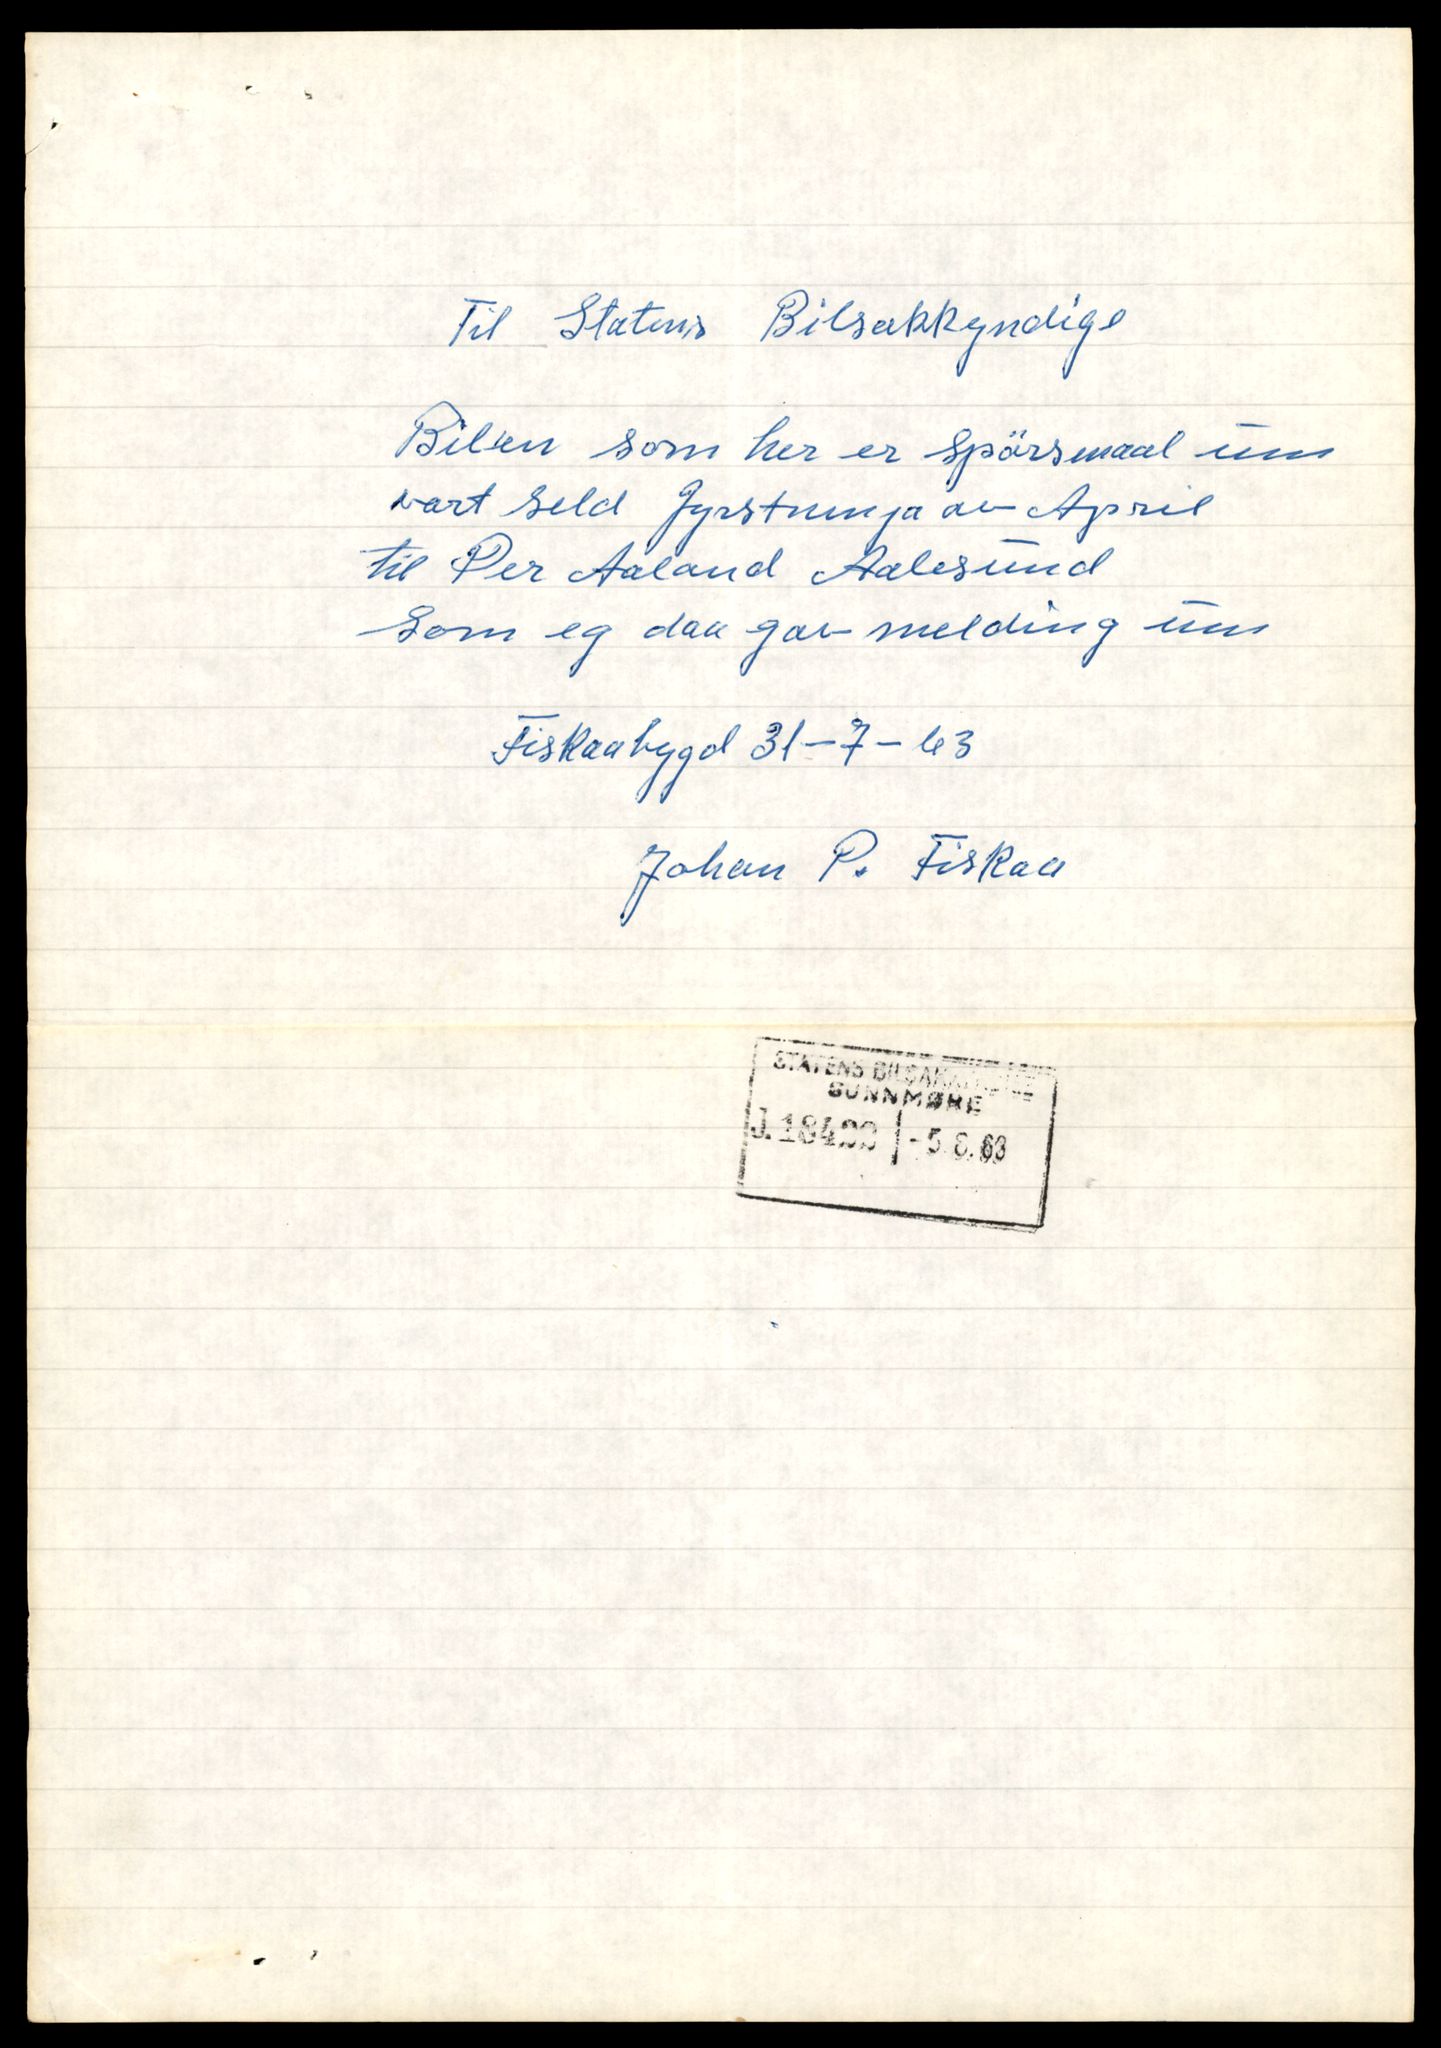 Til Statens Bilsakkyndige
Bilen som her er spörsmaal um
vart seld fyrstninga av April
til Per Aaland Aalesund
som eg daa gav melding um
Fiskaabygd 31-7-63
Johan P. Fiskaa
STATENS BILSAKKYNDIGE
SUNNMØRE
-5.8.63